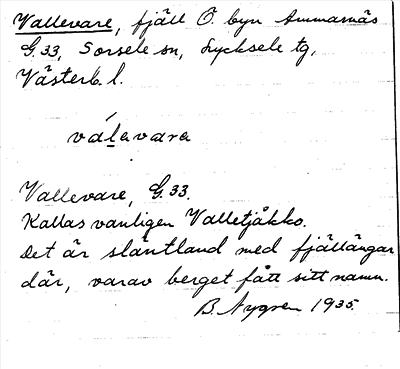 Vallevare, fjäll Ö. byn Ammarnäs
G.33, Sorsele sn, Lycksele tg,
Västerb. l.
válavara
Vallevare, G.33.
Kallas vanligen Valletjåkko.
Det är slåntland med fjällängar
där, varav berget fått sitt namn.
B. Nygren 1935.